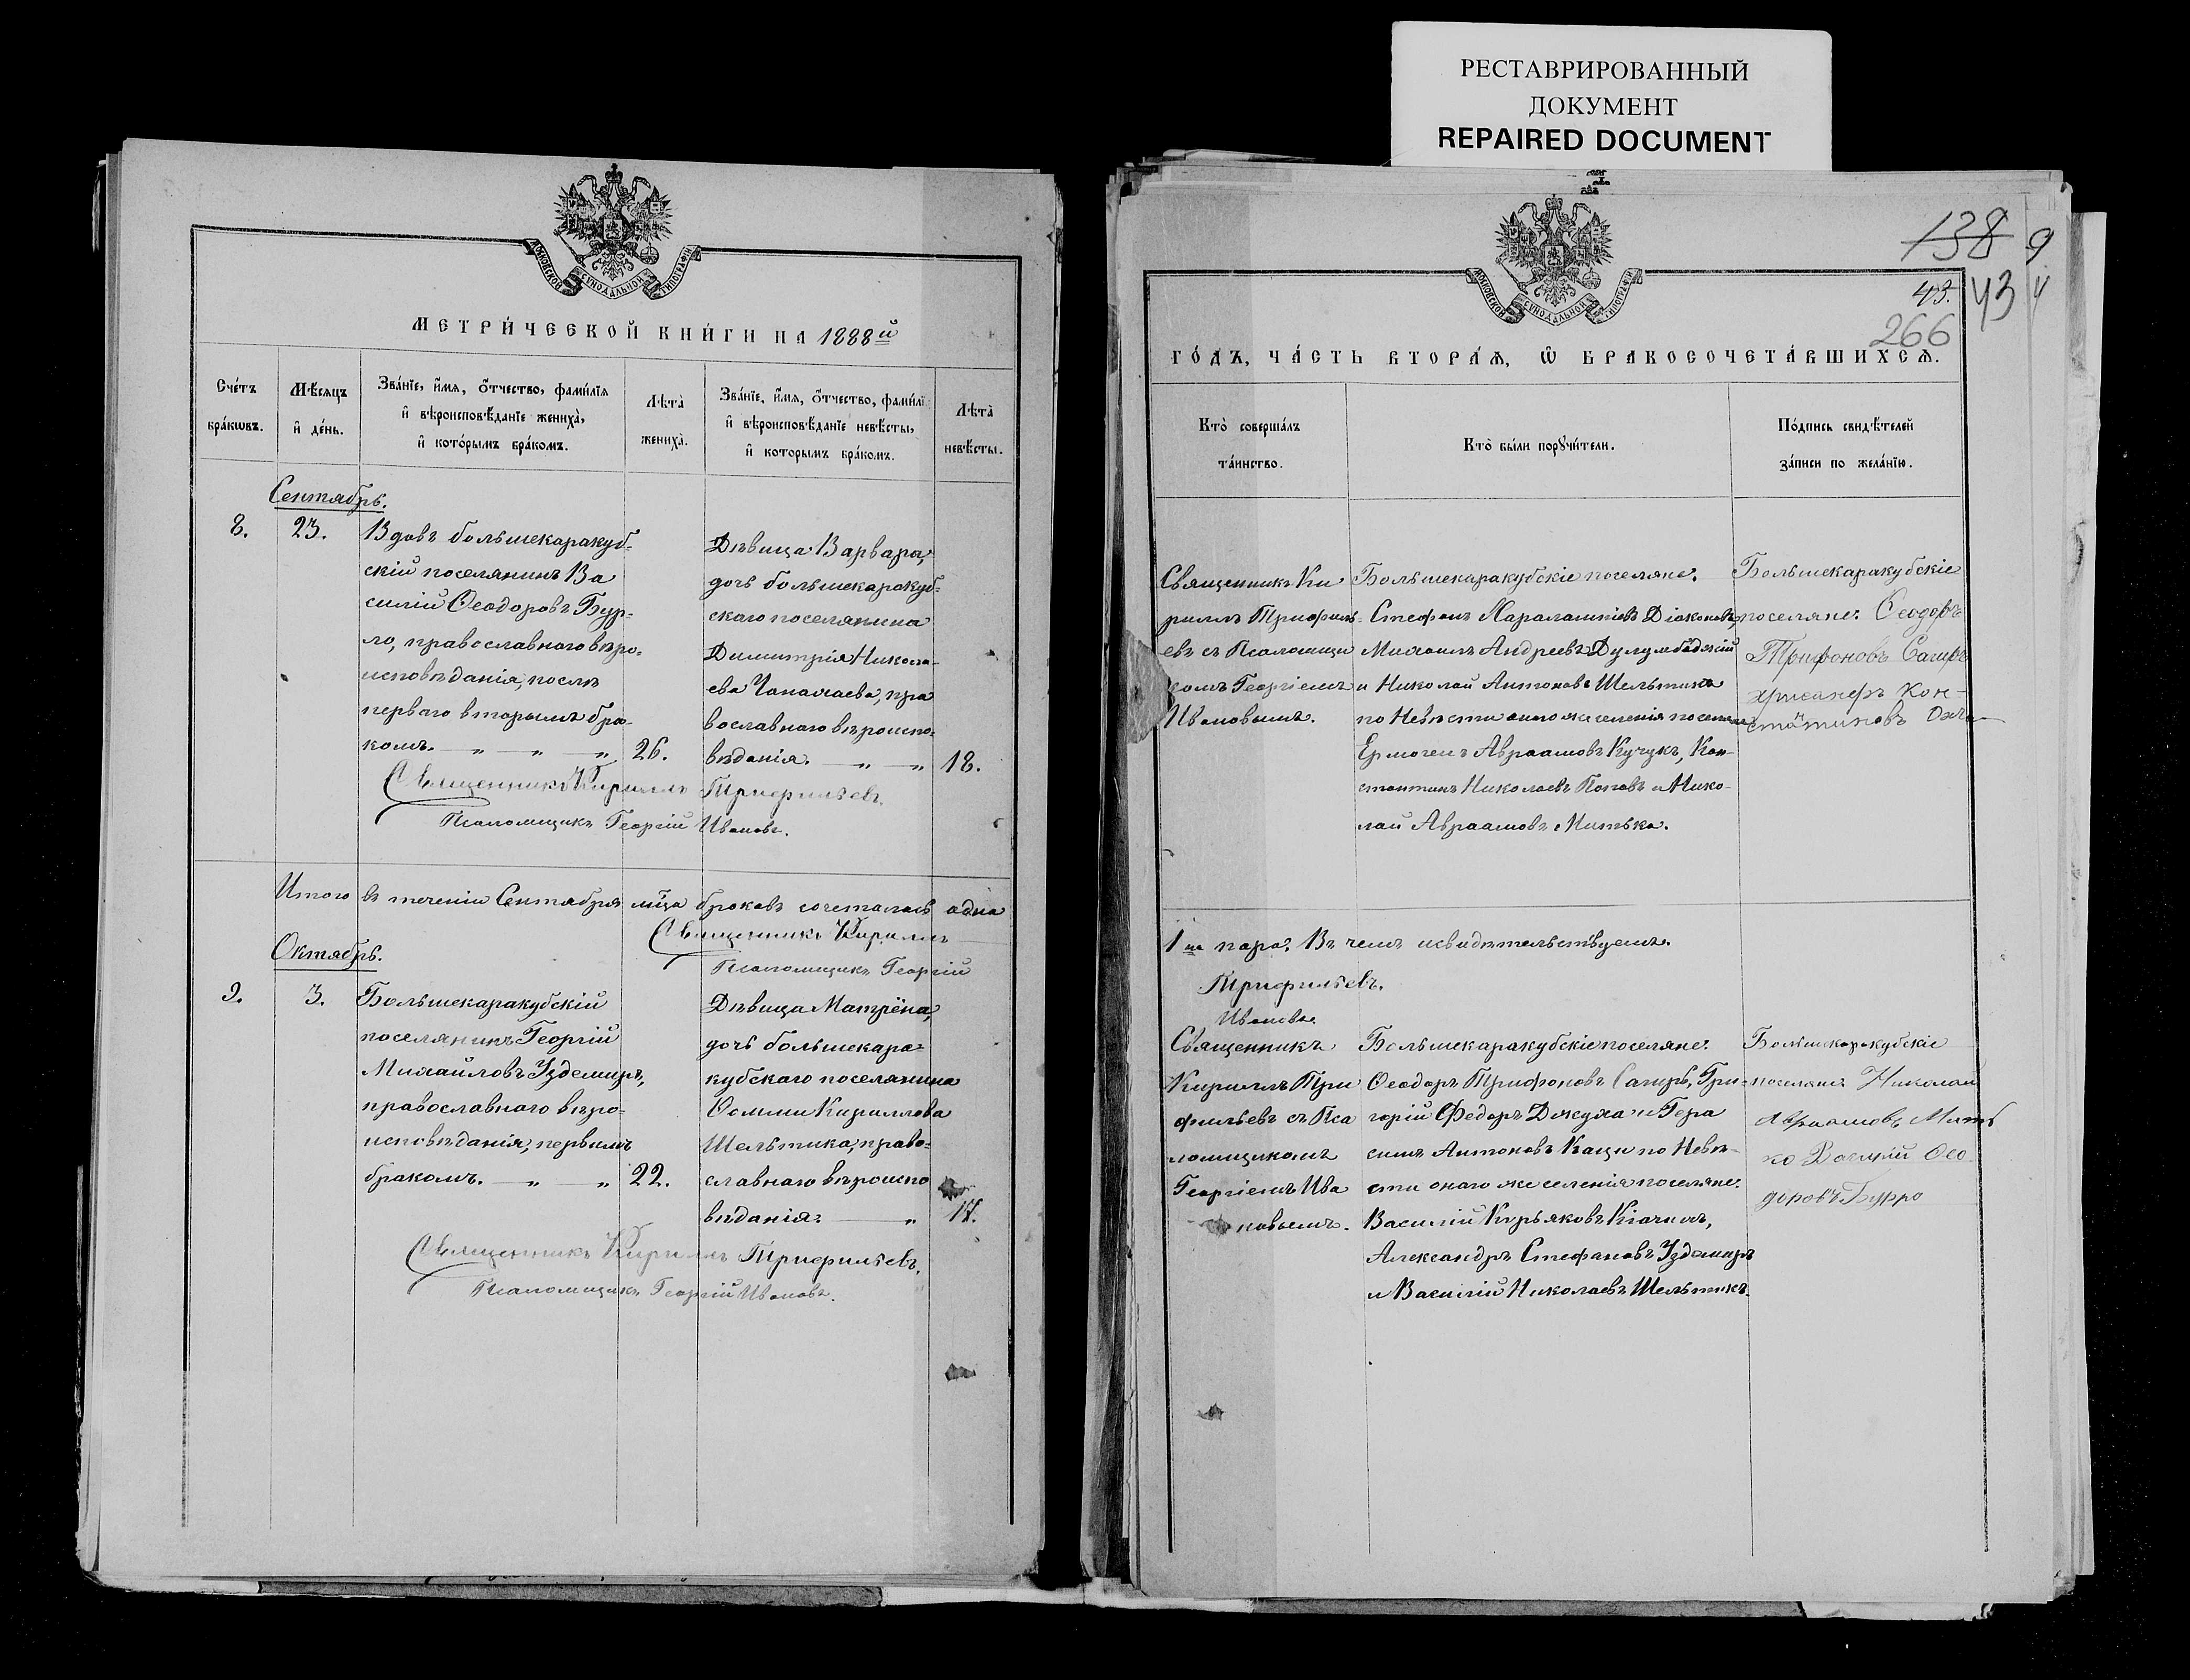 РЕСТАВРИРОВАННЫЙ
ДОКУМЕНТ
REPAIRED DOCUMENT
МОСКОВСКОЙ СѴНОДАЛЬНОЙ ТИПОГРАФІИ
МЕТРИ́ЧЕСКОЙ КНИ́ГИ НА 1888й
Сче́тъ
бра́кѡвъ.
Мѣ́сяцъ
и҆ де́нь.
Зва́нїе, и҆́мя, ѻ҆́тчество, фами́лїя
и҆ вѣроисповѣ́данїе жениха̀,
и҆ кото́рымъ бра́комъ.
Лѣта̀
жениха̀.
Зва́нїе, и҆́мя, ѻ҆́тчество, фами́лї
и҆ вѣроисповѣ́данїе невѣ́сты,
и҆ которымъ бра́комъ.
Лѣта̀
невѣ́сты.
Сентябрь.
8.
23.
Вдовъ большекаракуб-
скій поселянинъ Ва
силій Ѳеодоровъ Бур-
ло, православнаго вѣро-
исповѣданія, послѣ
перваго вторымъ бра-
комъ. — „ — „ — „
26.
Дѣвица Варвара,
дочь большекаракуб-
скаго поселянина
Димитрія Никола-
ева Чапачаева, пра
вославнаго вѣроиспо-
вѣданія. — „ — „
18.
Священникъ Кириллъ Трифильевъ.
Псаломщикъ Георгій Ивановъ.
Итого въ теченіи Сентября мѣца браковъ сочеталась одна
Священникъ Кириллъ
Псаломщикъ Георгій
Октябрь.
9.
3.
Большекаракубскій
поселянинъ Георгій
Михайловъ Уздемиръ,
православнаго вѣро-
исповѣданія, первымъ
бракомъ. — „ — „
22.
Дѣвица Матрёна,
дочь большекара-
кубскаго поселянина
Ѳомы Кириллова
Шельтика, право-
славнаго вѣроиспо
вѣданія. — „
17.
Священникъ Кириллъ Трифильевъ.
Псаломщикъ Георгій Ивановъ.
138 9
43. 43
266
МОСКОВСКОЙ СѴНОДАЛЬНОЙ ТИПОГРАФІИ
ГО́ДЪ, ЧА́СТЬ ВТОРА́Ѧ, Ѽ БРАКОСОЧЕТА́ВШИХСѦ.
Кто̀ соверша́лъ
та́инство.
Кто̀ бы́ли порꙋчи́тели.
По́дпись свидѣ́телей
за́писи по жела́нїю.
Священникъ Ки
риллъ Трифиль-
евъ съ Псаломщи
комъ Георгіемъ
Ивановымъ.
Большекаракубскіе поселяне:
Стефанъ Харалампіевъ Діаконовъ,
Михаилъ Андреевъ
и Николай Антоновъ Шельтикъ
по Невѣсти онаго же селенія поселяне
Ермогенъ Авраамовъ Кучукъ, Кон-
стантинъ Николаевъ Поповъ и Нико-
лай Авраамовъ Митько.
Большекаракубскіе
поселяне: Ѳеодоръ
Трифоновъ Сагиръ
Хрисанфъ Кон-
стантиновъ
1на пара. Въ чемъ и свидѣтельствуемъ.
Трифильевъ.
Ивановъ.
Священникъ
Кириллъ Три
фильевъ съ Пса
ломщикомъ
Георгіемъ Ива
новымъ.
Большекаракубскіе поселяне:
Ѳеодоръ Трифоновъ Сагиръ, Гри-
горій Федоръ Джуха и Гера
симъ Антоновъ Кацы по Невѣ-
сти онаго же селенія поселяне:
Василій Кирьяковъ
Александръ Стефановъ Уздемиръ
и Василій Николаевъ Шельтикъ.
Большекаракубскіе
поселяне Николай
Авраамовъ Мить
ко Василій Ѳео
доровъ Бурло